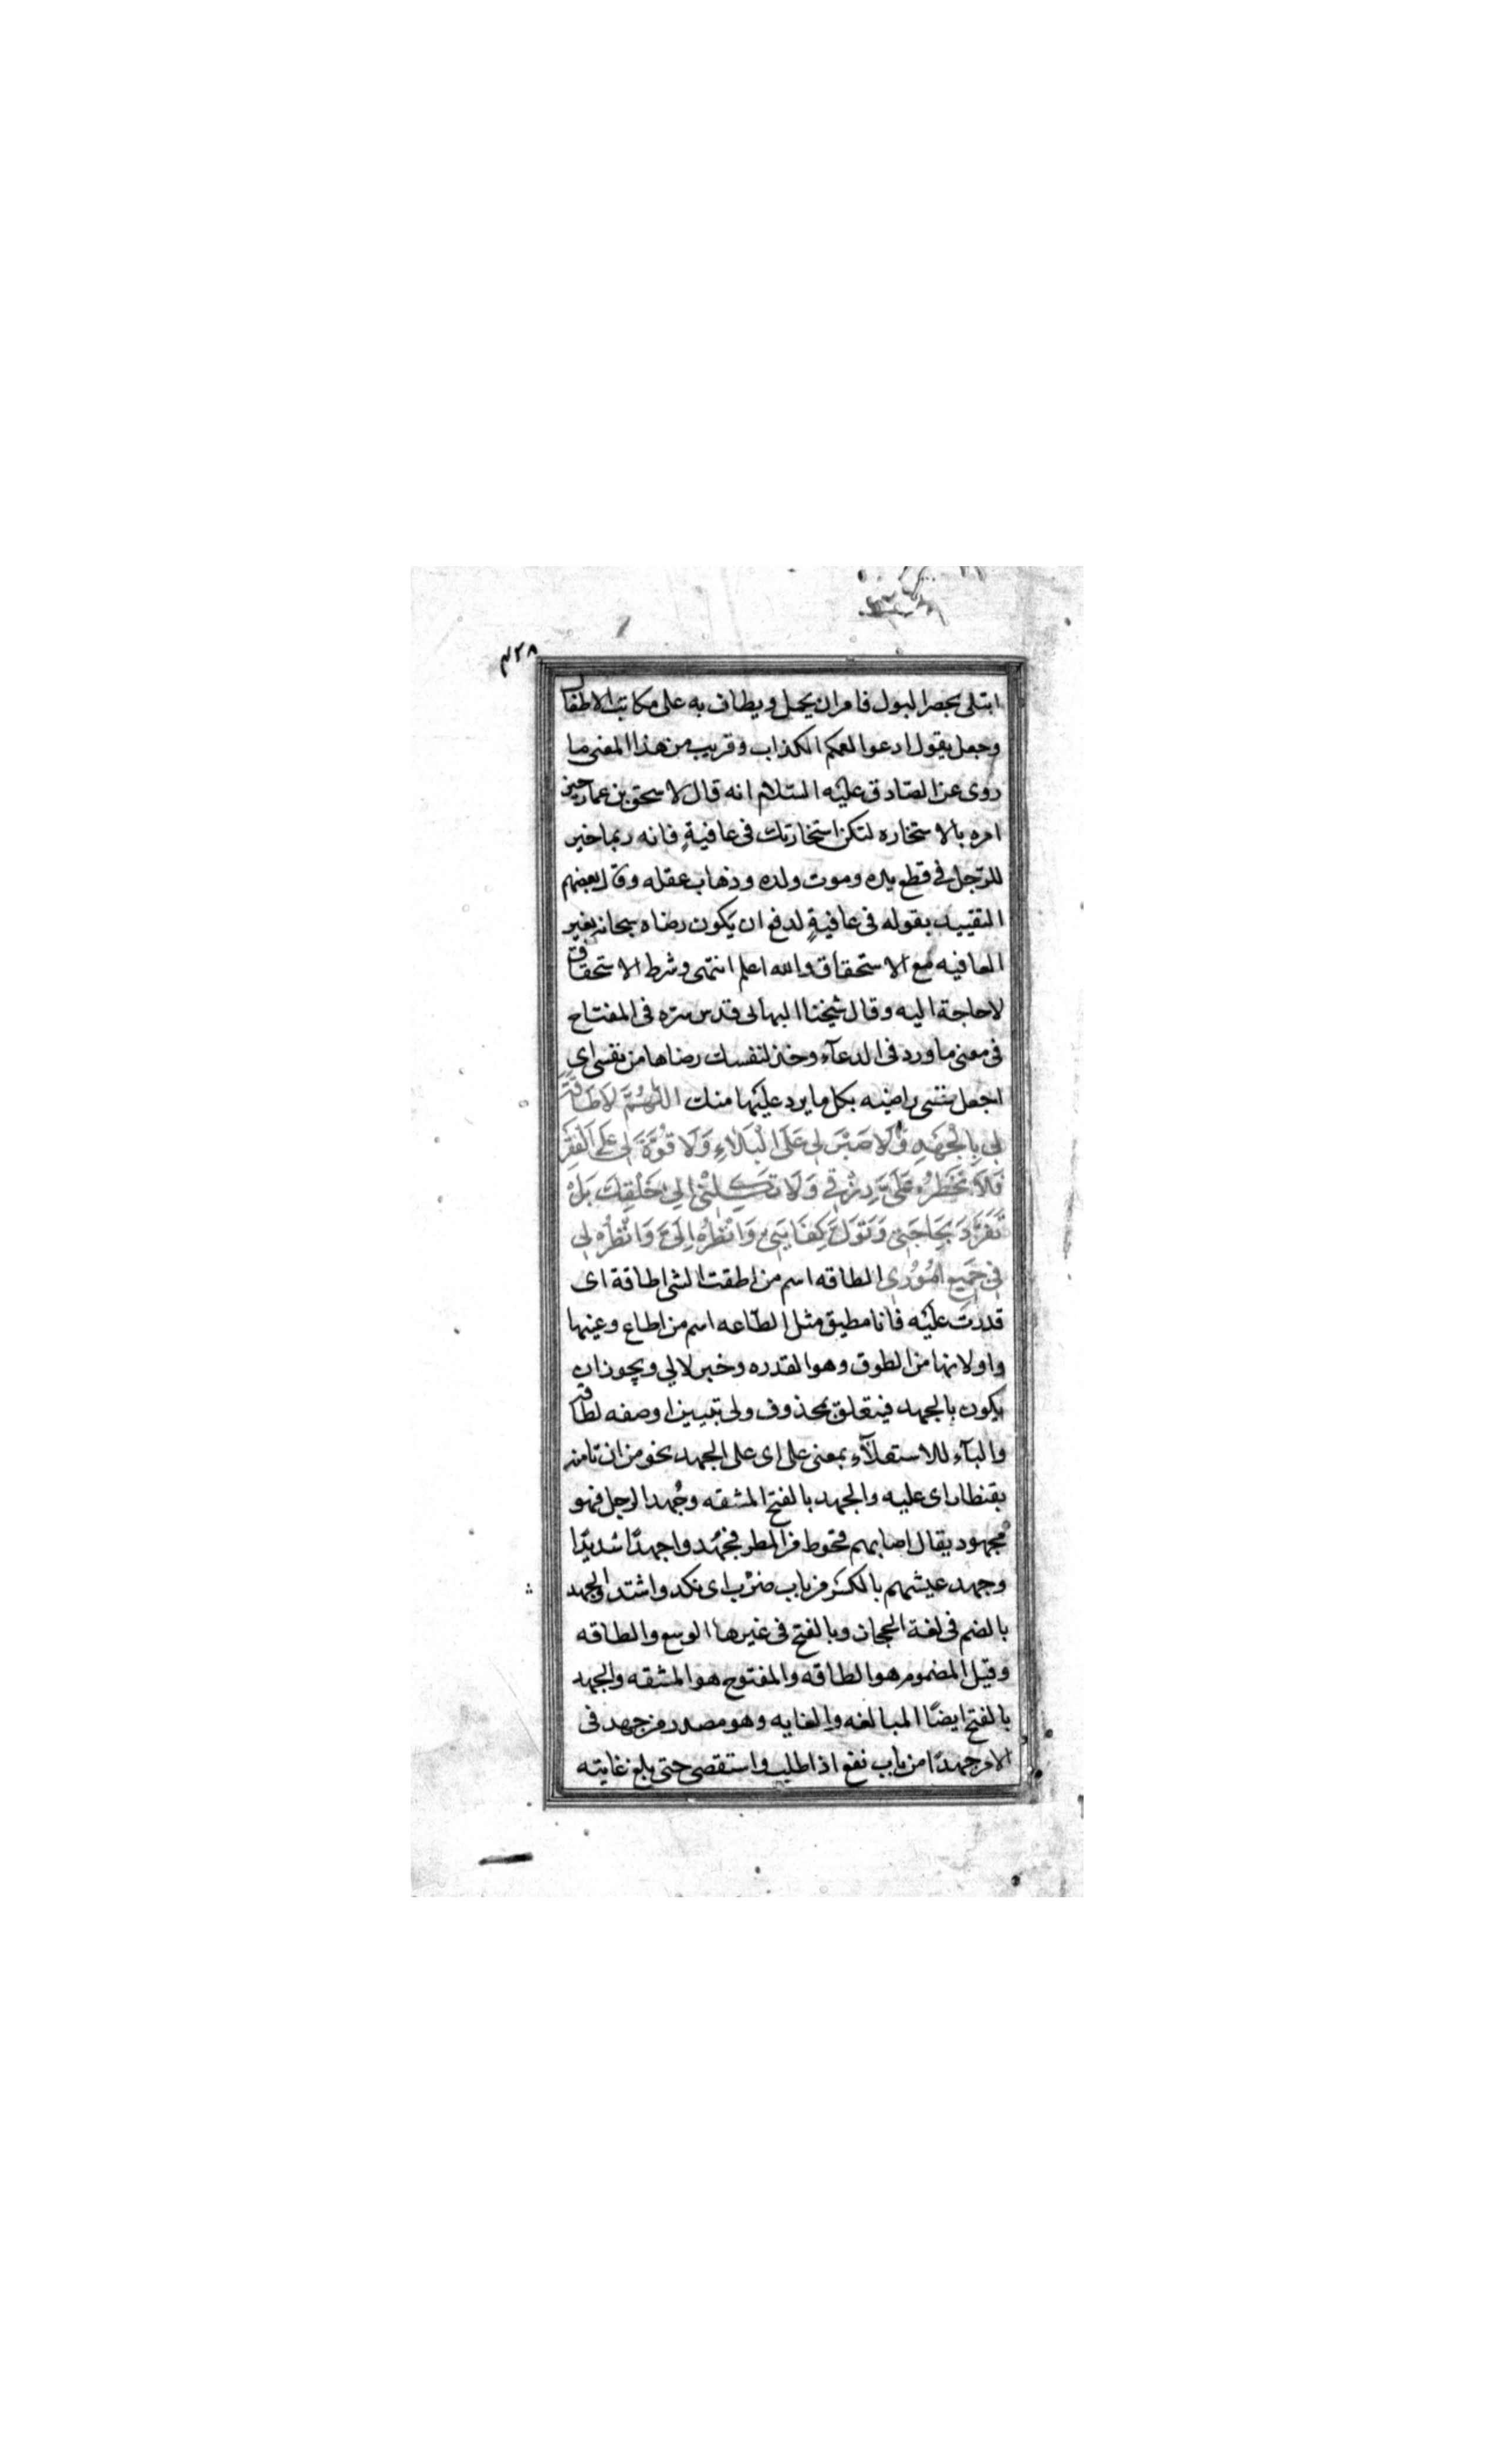 ٤٢٨
ابتلى بحصر البول فامر ان يحمل ويطاف به على مكاتب الاطفال
وجعل يقول ادعوا لعمكم الكذاب وقريب من هذا المعنى ما
روى عن الصّادق عليْه السّلام انه قال لاسحق بن عمار حين
امره بالاستخاره لتكن استخارتك فى عافيةٍ فانه ربما خير
للرّجل فى قطع يده وموت ولده وذهاب عقله وقال بعضهم
التقييد بقوله فى عافيةٍ لدفع ان يَكون رضاه سبحانه بغير
العافيه مع الاستحقاق والله اعلم انتهى وشرط الاستحقاق
لا حاجة اليه وقال شيخنا البهائى قدس سرّه فى المفتاح
فى معنى ما ورد فى الدعآء وخذ لنفسك رضاها من نفسى اى
اجعل نفسى راضيه بكل ما يرد عليْها منك اللّٰهُمَّ لَا طَاقَةَ
لِى بِالْجَهْدِ وَلَا صَبْرَ لِى عَلَى الْبَلَاءِ وَلَا قُوَّةَ لِى عَلَى الْفَقْرِ
فَلَا تَحْظُرْ عَلَىَّ رِزْقِى وَلَا تَكِلْنِى اِلىٰ خَلْقِكَ بَلْ
تَفَرَّدَ بِحَاجَتِى وَتَوَلَّ كِفَايَتِى وَانْظُرْ اِلَىَّ وَانْظُرْ لِى
فِى جَمِيعِ اُمُوْرِى الطاقه اسم من اطقت الشى اطاقة اى
قدرت عليْه فانا مطيق مثل الطّاعه اسم من اطاع وعينها
واو لانها من الطوق وهو القدره وخبر لا لى ويجوز ان
يكون بالجهد فيتعلق بمحذوف ولى تبيين او صفه لطاقة
والبآء للاستعلآء بمعنى على اى على الجهد نحو من ان تامنه
بقنطار اى عليه والجهد بالفتح المشقه وجُهد الرجل فهو
مجهود يقال اصابهم قحوط من المطر فجُهدوا جهدًا شديدًا
وجهد عيشهم بالكسر من باب ضرْب اى نكد واشتد والجهد
بالضم فى لغة الحجاز وبالفتح فى غيرها الوسع والطاقه
وقيل المضموم هو الطاقه والمفتوح هو المشقه والجهد
بالفتح ايضًا المبالغه والغايه وهو مصدر من جهد فى
الامر جهدًا من باب نفع اذا طلب واستقصى حتى بلغ غايته